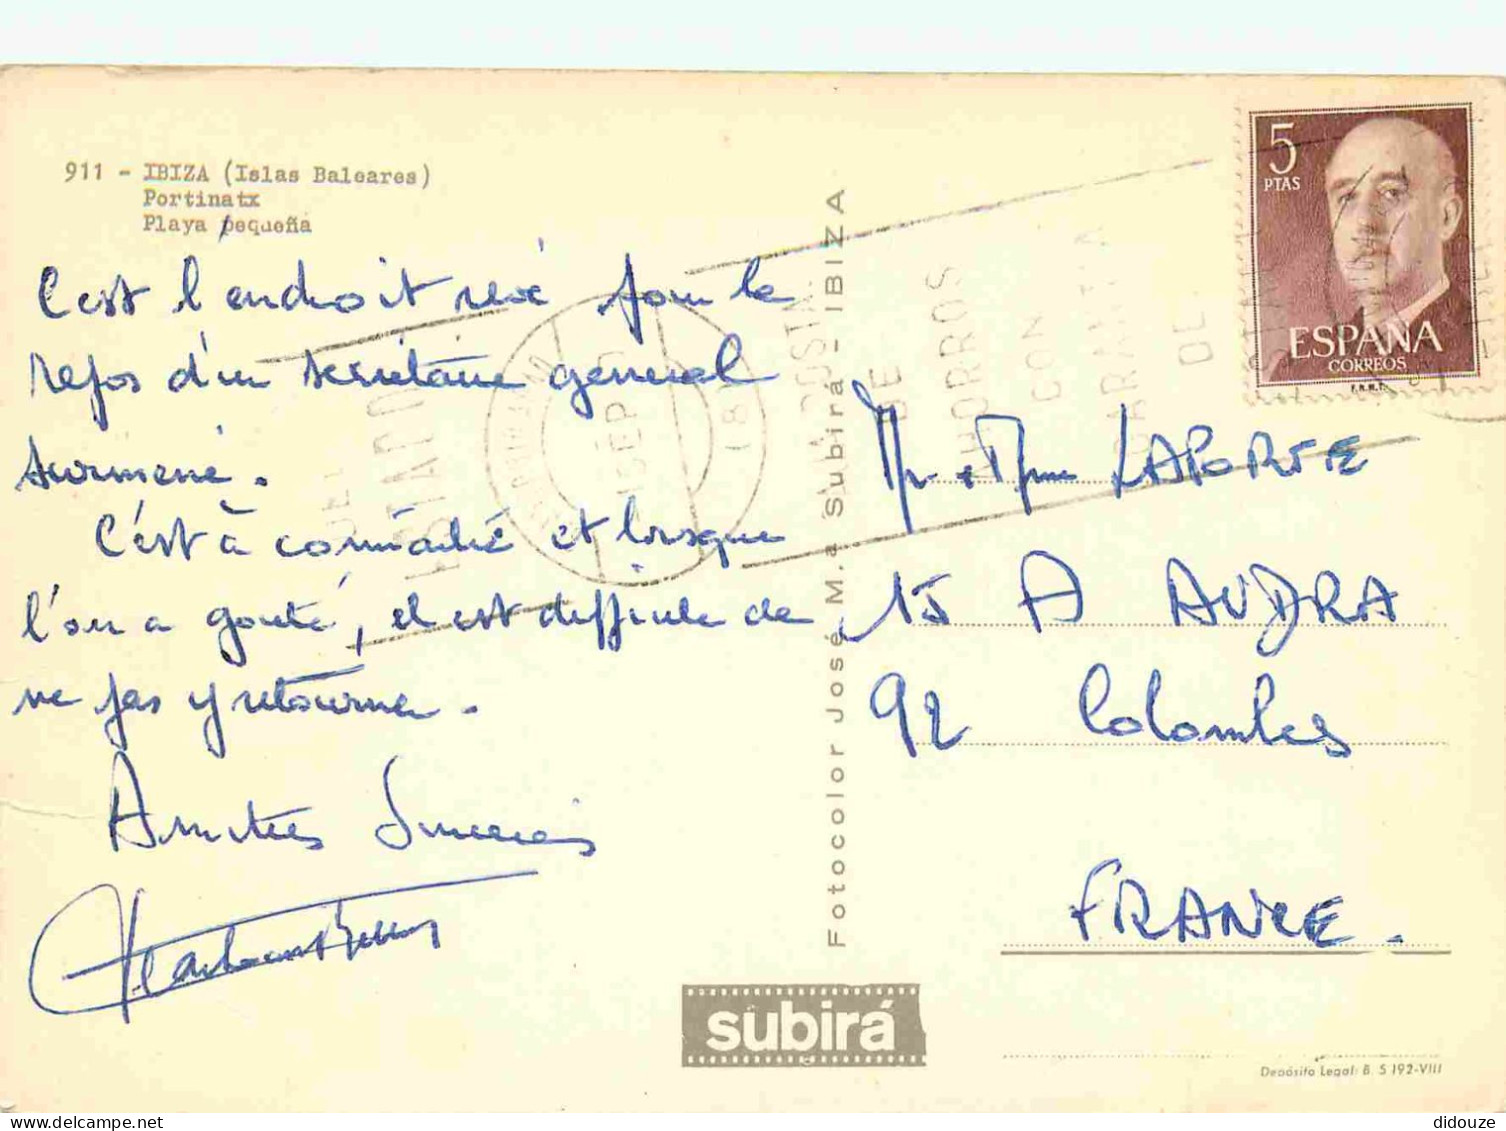 911 - IBIZA (Islas Baleares)
Portinatx
Playa pequeña
C'est l'endroit rêvé pour le
repos d'un secrétaire général
surmené.
C'est à connaitre et lorsque
l'on a gouté, il est difficile de
ne pas y retourner.
Amitiés Sincères
Fotocolor José M.a Subirá - IBIZA
subirá
5
PTAS
ESPAÑA
CORREOS
F.N.M.T.
POSTAL
DE
AHORROS
CON
GARANTIA
DEL
ESTADO
SEP
18
Mr et Mme LAPORTE
15 A AUDRA
92 Colombes
FRANCE.
Depósito Legal: B. 5 192-VIII
didouze
delcampe.net